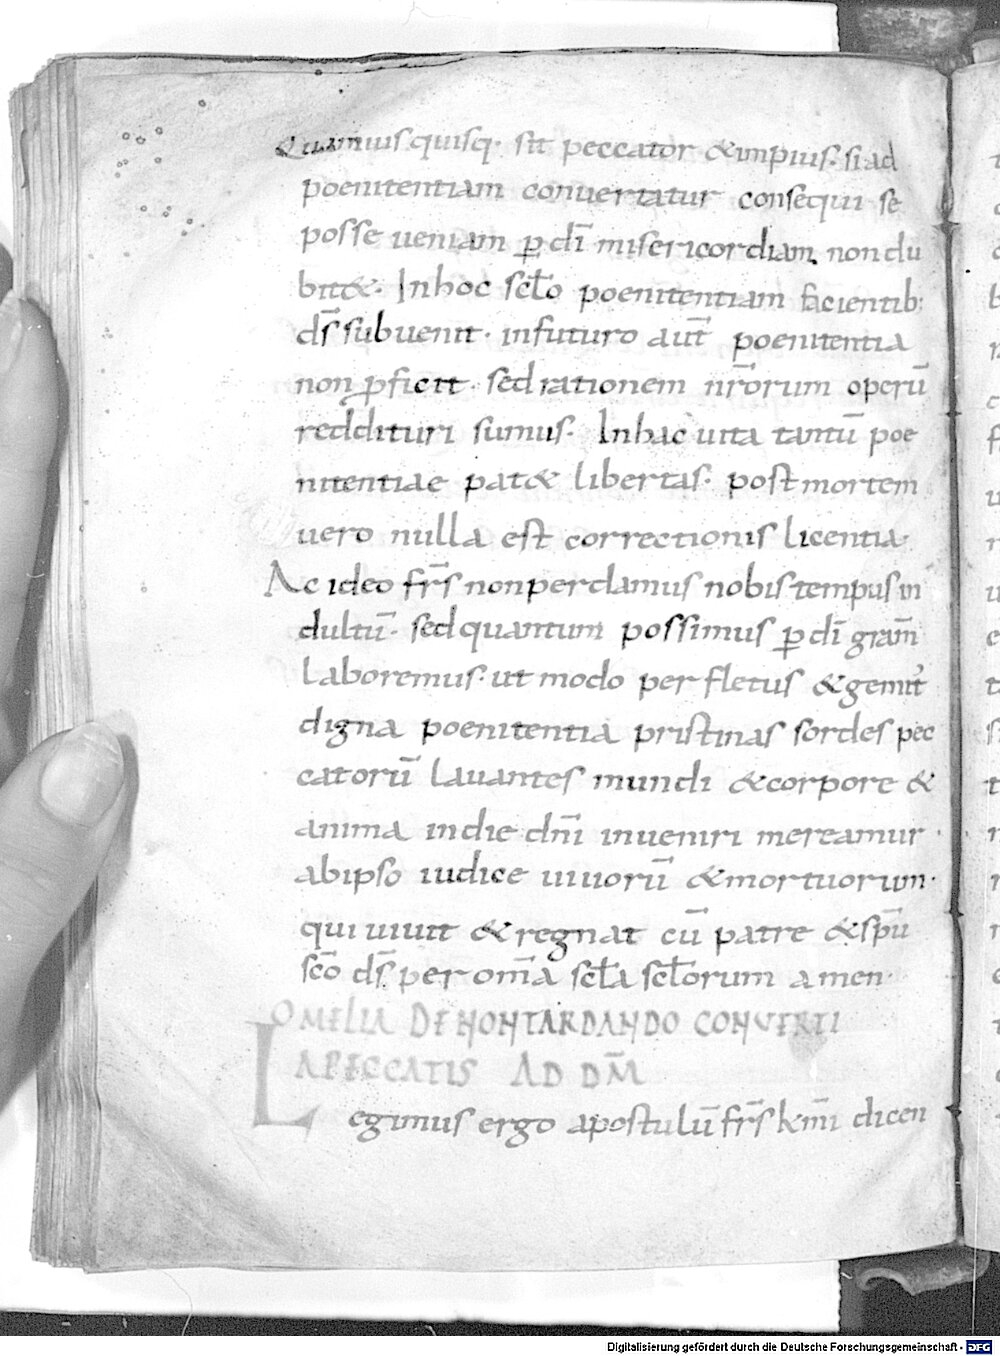 Quamuis quisq· sit peccator & impius· si ad
poenitentiam convertatur consequi se
posse ueniam p̱ dī misericordiam, non du
bit&· In hoc scl̄o poenitentiam facientib;
d̄s subuenit· in futuro aut̄ poenitentia
non p̱ficit· sed rationem nr̄orum operū
reddituri sumus· In hac uita tantū poe
nitentiae pat& libertas· post mortem
uero nulla est correctionis licentia·
Ac ideo fr̄s non perdamus nobis tempus in
dultū· sed quantum possimus p̱ dī gram̄
laboremus· ut modo per fletus & gemit'
digna poenitentia pristinas sordes pec
catorū lauantes mundi & corpore &
anima in die dn̄i inueniri mereamur·
ab ipso iudice uiuorū & mortuorum·
qui uiuit & regnat cū patre & sp̄u
sc̄o d̄s per om̄a scl̄a scl̄orum amen·
OMELIA DE NON TARDANDO CONVERTI
A PECCATIS AD DM̄
Legimus ergo apostulū fr̄s km̄i dicen
Digitalisierung gefördert durch die Deutsche Forschungsgemeinschaft - DFG